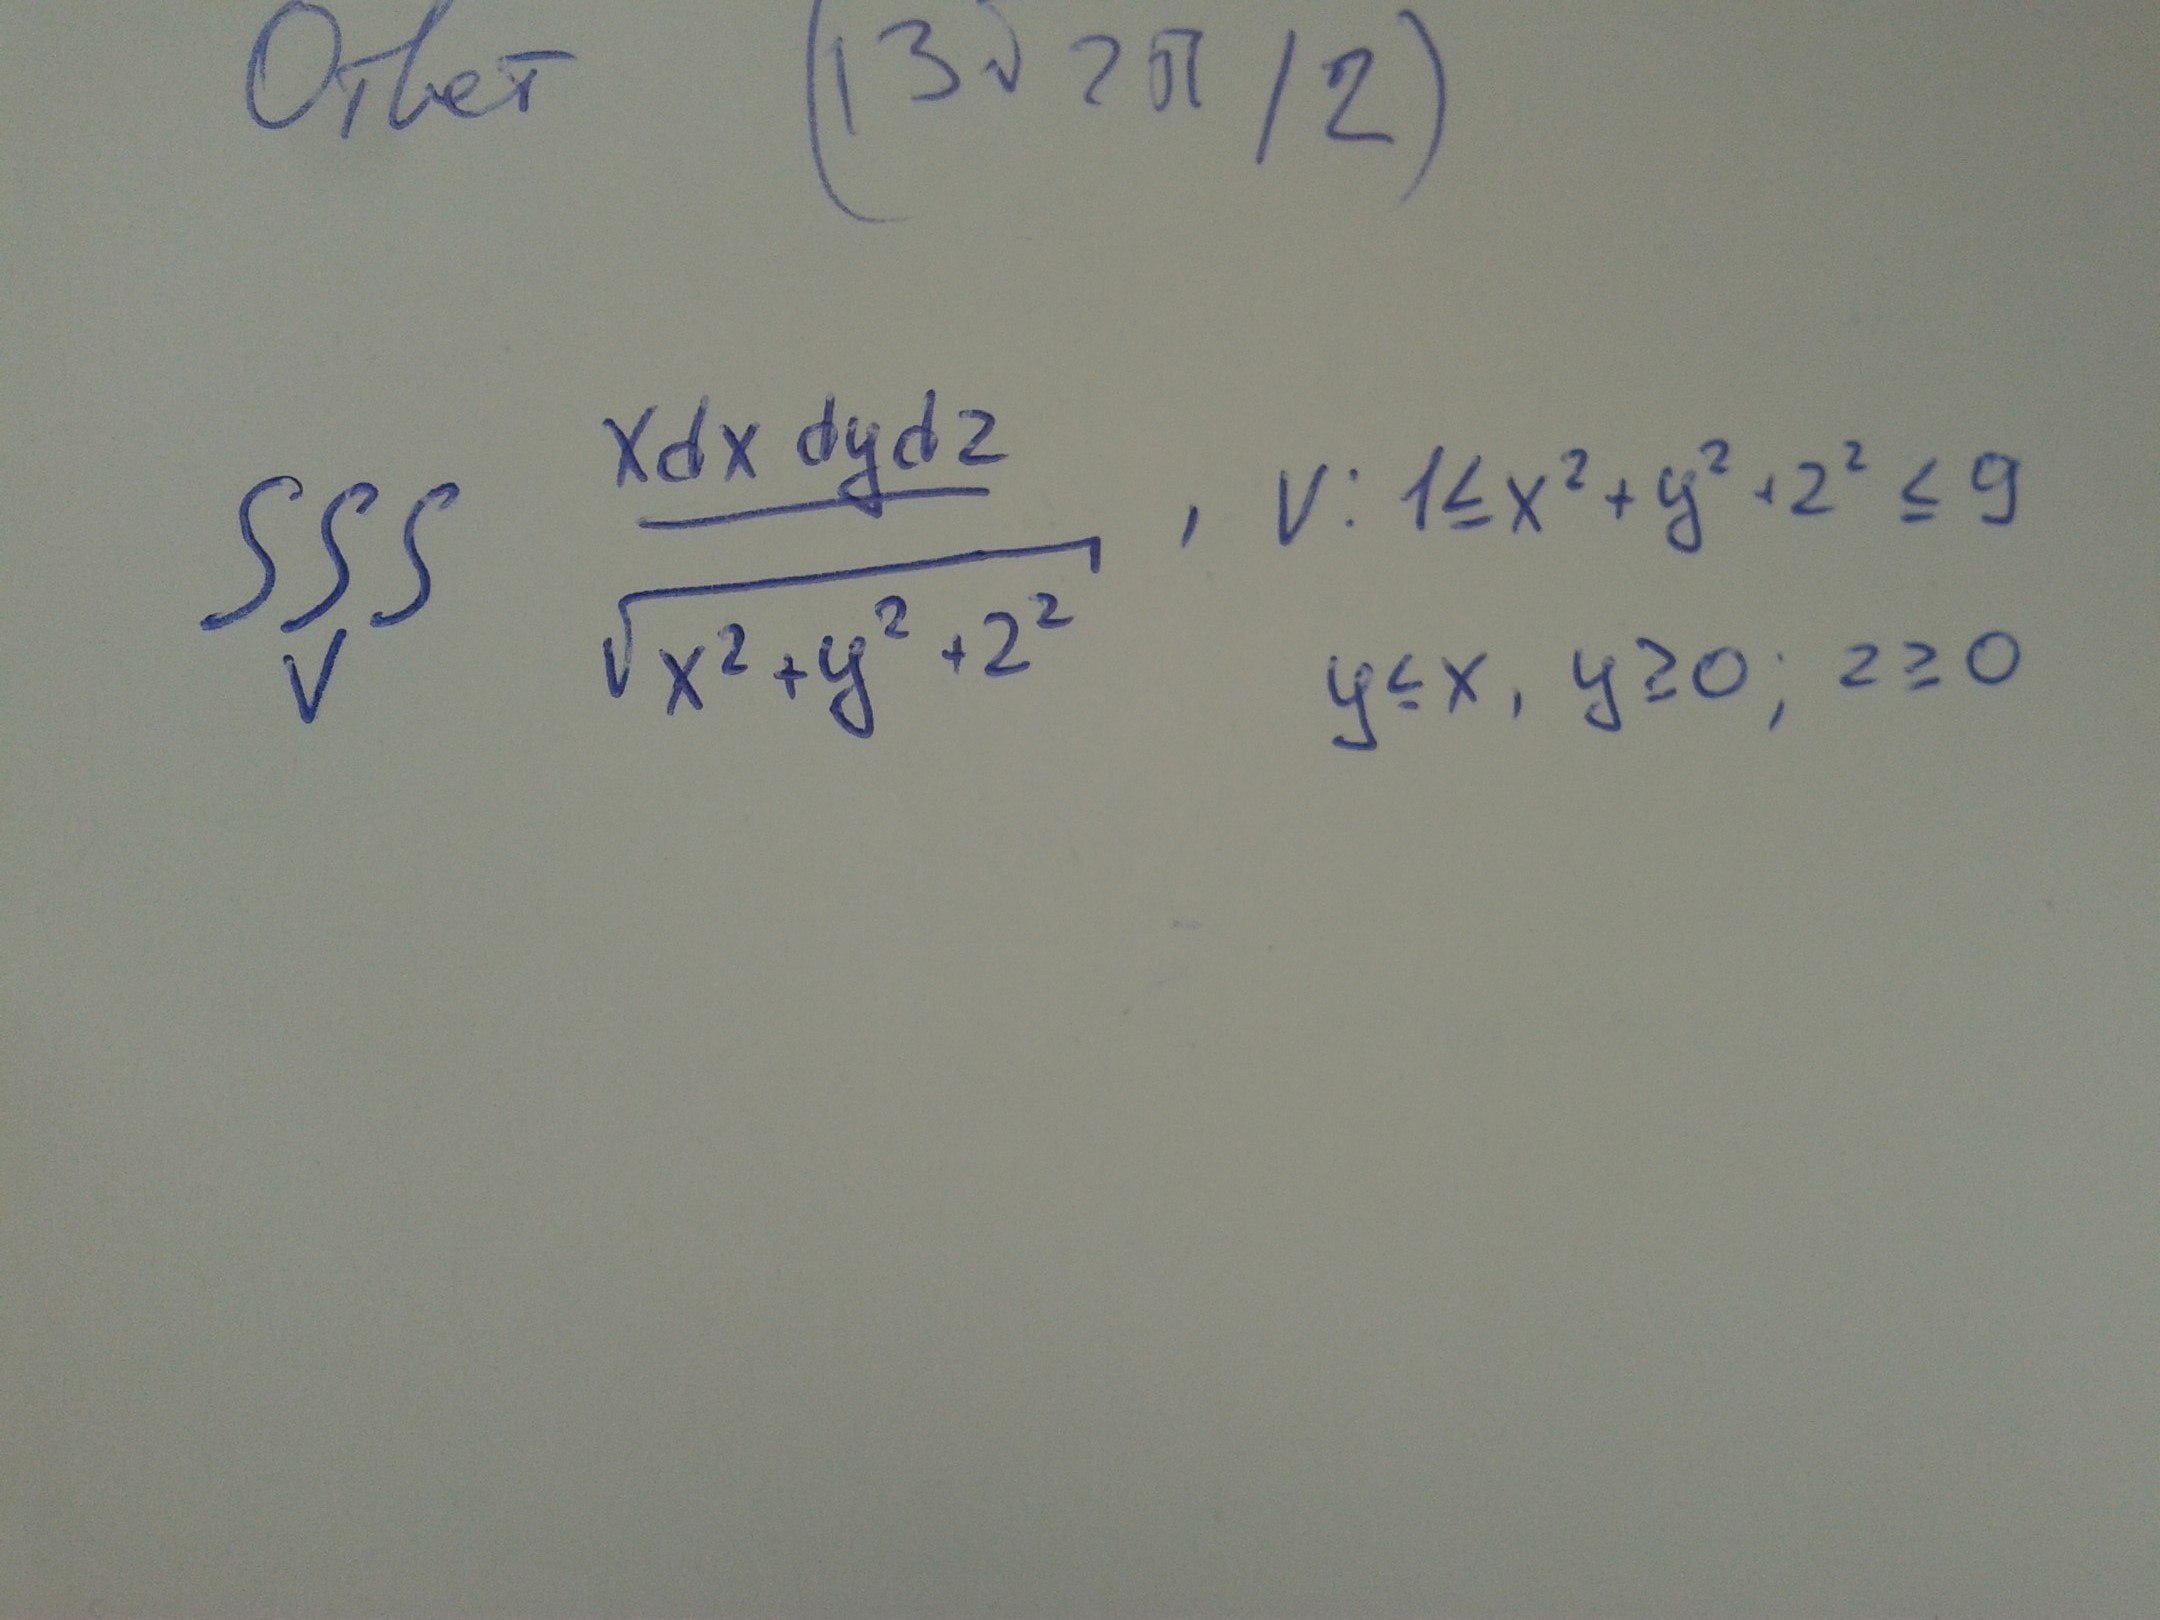 Ответ (13√2π/2)
∫∫∫_V xdx dydz / √(x²+y²+z²), V: 1≤x²+y²+z² ≤ 9
y≤x, y≥0; z≥0